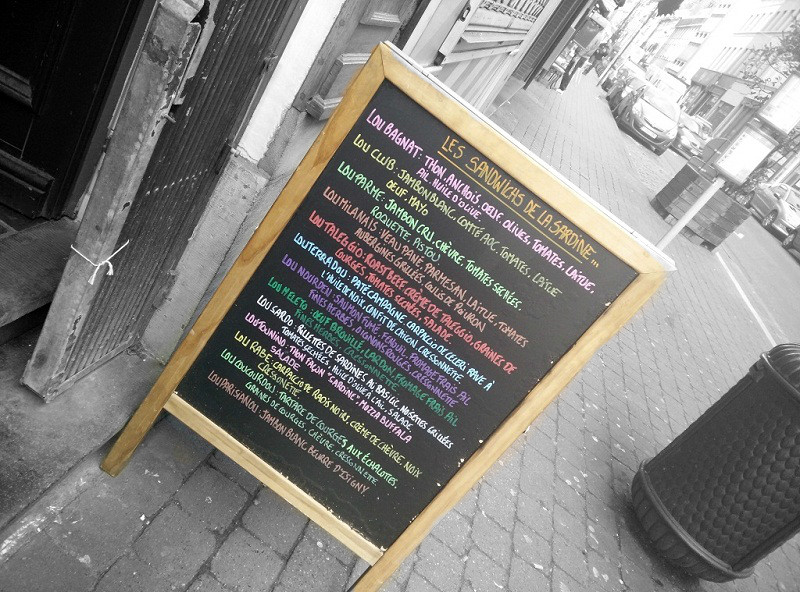 LES SANDWICHS DE LA SARDINE...
LOU BAGNAT: THON, ANCHOIS, OEUF, OLIVES, TOMATES, LAITUE,
AIL, HUILE D'OLIVE.
LOU CLUB: JAMBON BLANC, COMTÉ AOC, TOMATES, LAITUE
OEUF, MAYO
LOU PARME: JAMBON CRU, CHÈVRE, TOMATES SECHÉES,
ROQUETTE, PISTOU
LOU MILANAIS: VEAU PANE, PARMESAN, LAITUE, TOMATES
AUBERGINES GRILLÉES, COULIS DE POIVRON
LOU TALEGGIO: ROAST BEEF, CRÈME DE TALEGGIO, GRAINES DE
COURGES, TOMATES SECHÉES, SALADE
LOU TERRADOU: PATÉ CAMPAGNE, CARPACCIO DE CELERI RAVE A
L'HUILE DE NOIX, CONFIT DE OIGNON, CRESSONETTE
LOU NOURDEN: SAUMON FUMÉ, FENOUIL, FROMAGE FRAIS, AIL
FINES HERBES, OIGNONS ROUGES, CRESSONETTE
LOU MELETO: OEUF BROUILLÉ, LARDON, FROMAGE FRAIS AIL
FINES HERBES, CRESSONETTE
LOU SARDO: RILLETTES DE SARDINES, AL BASILIC, NOISETTES GRILLÉES
TOMATES SECHÉES, HUILE D'OLIVE A L'AIL, SALADE
LOU TOUNINO: THON FAÇON "SARDINE", MOZZA BUFFALA
SALADE
LOU RABE: CARPACCIO DE RADIS NOIRS, CRÈME DE CHÈVRE, NOIX
CRESSONETTE
LOU COUCOURDOU: TARTARE DE COURGES AUX ÉCHALOTTES,
GRAINES DE COURGES, CHÈVRE, CRESSONNETTE
LOU PARISIANOU: JAMBON BLANC, BEURRE D'ISIGNY